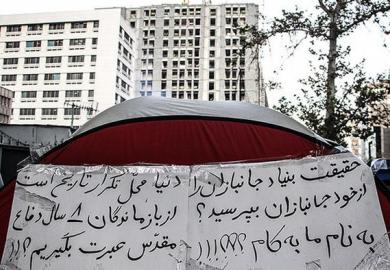 حقیقت بنیاد جانبازان را
از خود جانبازان بپرسید؟
به نام ما به کام ؟؟؟!!!
دنیا محل تکرار تاریخ است
از بازماندگان ۸ سال دفاع
مقدّس عبرت بگیریم؟!!